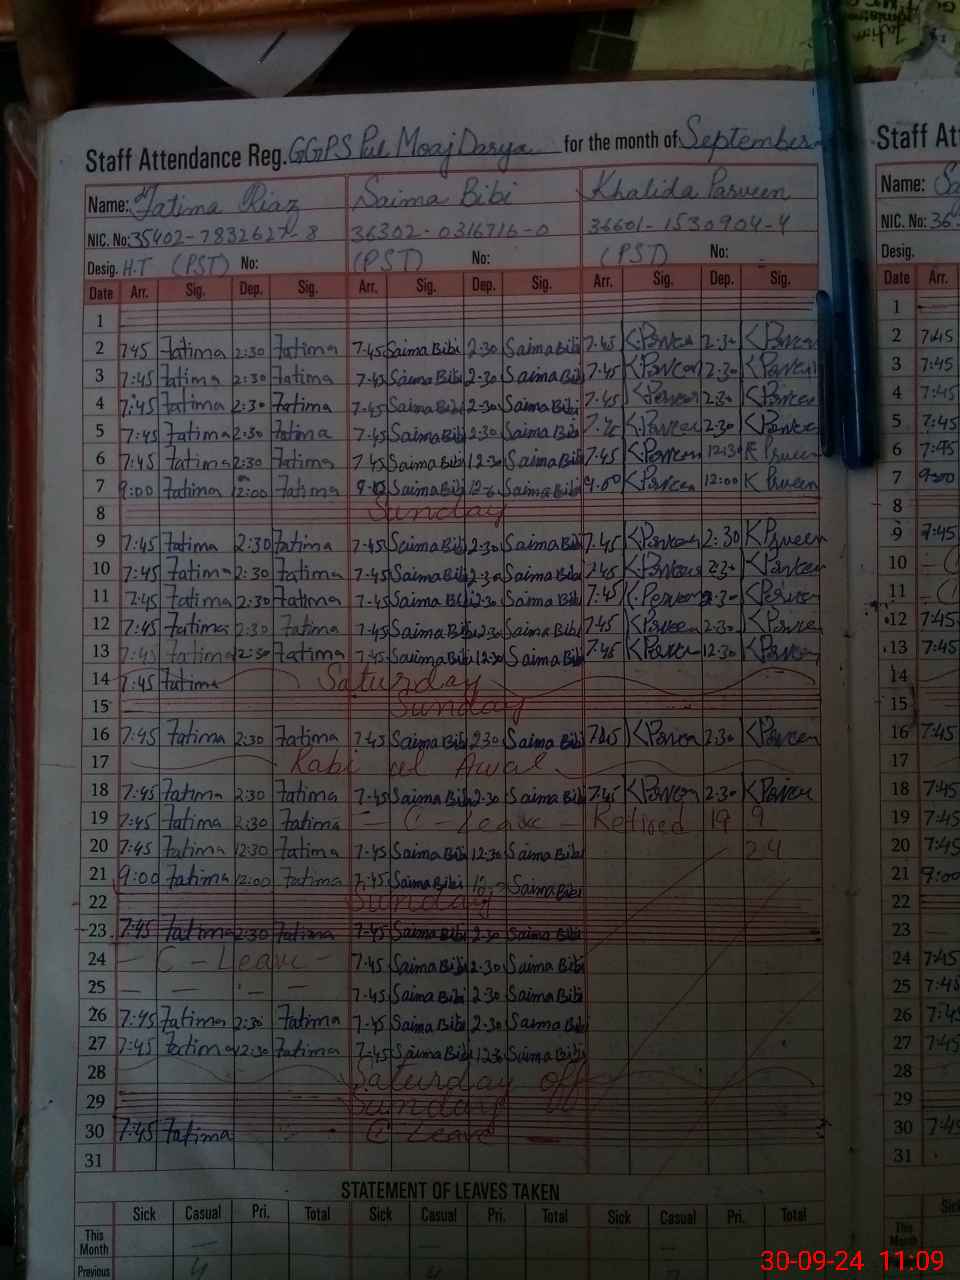 Staff Attendance Reg. GGPS Pul Moaj Darya for the month of September
Name: Fatima Riaz Saima Bibi Khalida Parveen
NIC. No: 35402-7832627-8 36302-0316716-0 36601-1530904-4
Desig. H.T (PST) No: (PST) No: (PST) No:
Date Arr. Sig. Dep. Sig. Arr. Sig. Dep. Sig. Arr. Sig. Dep. Sig.
1
2 7:45 Fatima 2:30 Fatima 7:45 Saima Bibi 2:30 Saima Bibi 7:45 K.Parveen 2:30 K Parveen
3 7:45 Fatima 2:30 Fatima 7:45 Saima Bibi 2:30 Saima Bibi 7:45 K Parveen 2:30 K Parveen
4 7:45 Fatima 2:30 Fatima 7:45 Saima Bibi 2:30 Saima Bibi 7:45 K Parveen 2:30 K Parveen
5 7:45 Fatima 2:30 Fatima 7:45 Saima Bibi 2:30 Saima Bibi K.Parveen 2:30 K Parveen
6 7:45 Fatima 2:30 Fatima 7:45 Saima Bibi 12:30 Saima Bibi 7:45 K.Parveen 12:30 K Prveen
7 9:00 Fatima 12:00 Fatima Saima Bibi Saima Bibi 9:00 K Parveen 12:00 K Prveen
8 Sunday
9 7:45 Fatima 2:30 Fatima 7:45 Saima Bibi 2:30 Saima Bibi 7:45 K Parveen 2:30 K Prveen
10 7:45 Fatima 2:30 Fatima 7:45 Saima Bibi 2:30 Saima Bibi 7:45 K Parveen 2:30 K Parveen
11 7:45 Fatima 2:30 Fatima 7:45 Saima Bibi 2:30 Saima Bibi 7:45 K.Parveen 2:30 K Parveen
12 7:45 Fatima 2:30 Fatima 7:45 Saima Bibi 2:30 Saima Bibi 7:45 K Parveen 2:30 K Parveen
13 7:45 Fatima 12:30 Fatima 7:45 Saima Bibi 12:30 Saima Bibi 7:45 K Parveen 12:30 K Parveen
14 7:45 Fatima Saturday
15 Sunday
16 7:45 Fatima 2:30 Fatima 7:45 Saima Bibi 2:30 Saima Bibi 7:45 K Parveen 2:30 K Parveen
17 Rabi ul Awal
18 7:45 Fatima 2:30 Fatima 7:45 Saima Bibi 2:30 Saima Bibi 7:45 K Parveen 2:30 K Parveen
19 7:45 Fatima 2:30 Fatima - C - Leave - Retired 19 9
20 7:45 Fatima 12:30 Fatima 7:45 Saima Bibi 12:30 Saima Bibi 24
21 9:00 Fatima 12:00 Fatima 7:45 Saima Bibi Saima Bibi
22 Sunday
23 7:45 Fatima 2:30 Fatima 7:45 Saima Bibi 2:30 Saima Bibi
24 - C - Leave - 7:45 Saima Bibi 2:30 Saima Bibi
25 - - - - 7:45 Saima Bibi 2:30 Saima Bibi
26 7:45 Fatima 2:30 Fatima 7:45 Saima Bibi 2:30 Saima Bibi
27 7:45 Fatima 12:30 Fatima 7:45 Saima Bibi 12:30 Saima Bibi
28 Saturday off
29 Sunday
30 7:45 Fatima C Leave -
31
STATEMENT OF LEAVES TAKEN
Sick Casual Pri. Total Sick Casual Pri. Total Sick Casual Pri. Total
This Month
Previous 4 4
Staff Att
Name: Sa
NIC. No: 36-
Desig.
Date Arr.
1
2 7:45
3 7:45
4 7:45
5 7:45
6 7:45
7 9:00
8
9 7:45
10
11
12 7:45
13 7:45
14
15
16 7:45
17
18 7:45
19 7:45
20 7:45
21 9:00
22
23
24 7:45
25 7:45
26 7:45
27 7:45
28
29
30 7:45
31
This Month
Previous
30-09-24 11:09